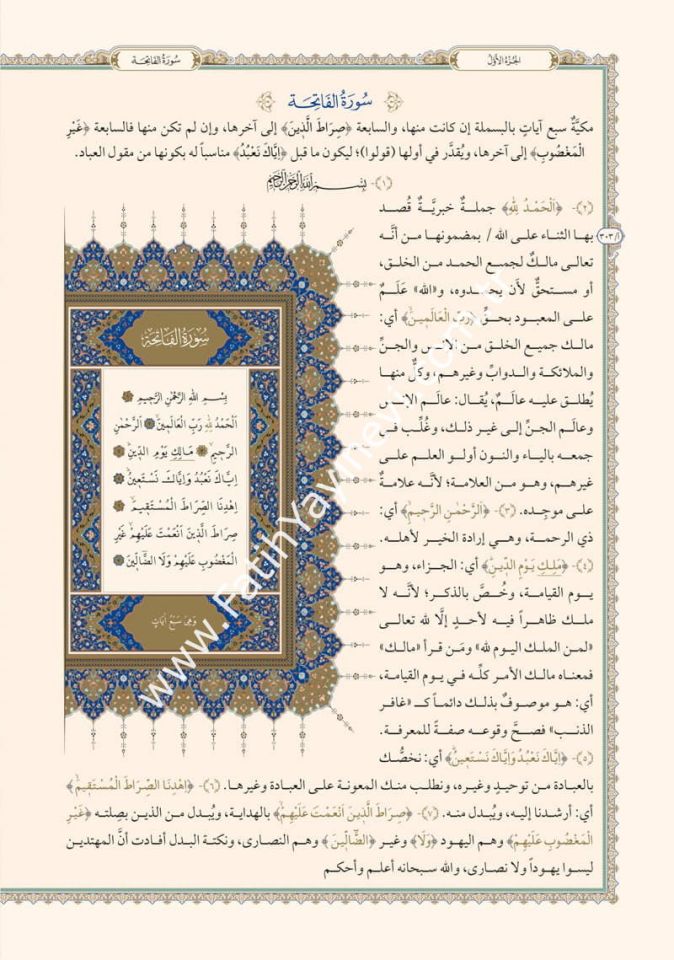 الجزء الأول
سورة الفاتحة
سُورَةُ الفَاتِحَة
مكيَّةٌ سبع آياتٍ بالبسملة إن كانت منها، والسابعة ﴿صِرَاطَ الَّذِينَ﴾ إلى آخرها، وإن لم تكن منها فالسابعة ﴿غَيْرِ
الْمَغْضُوبِ﴾ إلى آخرها، ويُقدَّر في أولها (قولوا)؛ ليكون ما قبل ﴿اِيَّاكَ نَعْبُدُ﴾ مناسباً له بكونها من مقول العباد.
(١)- بِسْمِ اللهِ الرَّحْمٰنِ الرَّحِيمِ
(٢)- ﴿اَلْحَمْدُ لِلّٰهِ﴾ جملةٌ خبريَّةٌ قُصد
بها الثناء على الله / بمضمونها من أنَّه
٣٠٣/أ
تعالى مالكٌ لجميع الحمد من الخلق،
أو مستحقٌّ لأن يحمدوه، و«الله» عَلَمٌ
على المعبود بحقٍّ ﴿رَبِّ الْعَالَمِينَ﴾ أي:
مالك جميع الخلق من الإنس والجنِّ
والملائكة والدوابِّ وغيرهم، وكلٌّ منها
يُطلق عليه عالَمٌ، يُقال: عالَم الإنس
وعالَم الجنِّ إلى غير ذلك، وغُلِّب في
جمعه بالياء والنون أولو العلم على
غيرهم، وهو من العلامة؛ لأنَّه علامةٌ
على موجِده. (٣)- ﴿اَلرَّحْمٰنِ الرَّحِيمِ﴾ أي:
ذي الرحمة، وهي إرادة الخير لأهله.
(٤)- ﴿مَلِكِ يَوْمِ الدِّينِ﴾ أي: الجزاء، وهو
يوم القيامة، وخُصَّ بالذكر؛ لأنَّه لا
ملك ظاهراً فيه لأحدٍ إلَّا لله تعالى
«لمن الملك اليوم لله» ومَن قرأ «مالك»
فمعناه مالك الأمر كلِّه في يوم القيامة،
أي: هو موصوفٌ بذلك دائماً كـ «غافر
الذنب» فصحَّ وقوعه صفةً للمعرفة.
(٥)- ﴿اِيَّاكَ نَعْبُدُ وَاِيَّاكَ نَسْتَعِينُ﴾ أي: نخصُّك
بالعبادة من توحيدٍ وغيره، ونطلب منك المعونة على العبادة وغيرها. (٦)- ﴿اِهْدِنَا الصِّرَاطَ الْمُسْتَقِيمَ﴾
أي: أرشدنا إليه، ويُبدل منه. (٧)- ﴿صِرَاطَ الَّذِينَ اَنْعَمْتَ عَلَيْهِمْ﴾ بالهداية، ويُبدل من الذين بصِلته ﴿غَيْرِ
الْمَغْضُوبِ عَلَيْهِمْ﴾ وهم اليهود ﴿وَلَا﴾ وغير ﴿الضَّٓالِّينَ﴾ وهم النصارى، ونكتة البدل أفادت أنَّ المهتدين
ليسوا يهوداً ولا نصارى، والله سبحانه أعلم وأحكم
سُورَةُ الْفَاتِحَةِ
بِسْمِ اللهِ الرَّحْمٰنِ الرَّحِيمِ
اَلْحَمْدُ لِلّٰهِ رَبِّ الْعَالَمِينَ اَلرَّحْمٰنِ
الرَّحِيمِ مَالِكِ يَوْمِ الدِّينِ
اِيَّاكَ نَعْبُدُ وَاِيَّاكَ نَسْتَعِينُ
اِهْدِنَا الصِّرَاطَ الْمُسْتَقِيمَ
صِرَاطَ الَّذِينَ اَنْعَمْتَ عَلَيْهِمْ غَيْرِ
الْمَغْضُوبِ عَلَيْهِمْ وَلَا الضَّٓالِّينَ
وَهِيَ سَبْعُ اٰيَاتٍ
www.FatihYayinevi.com.tr